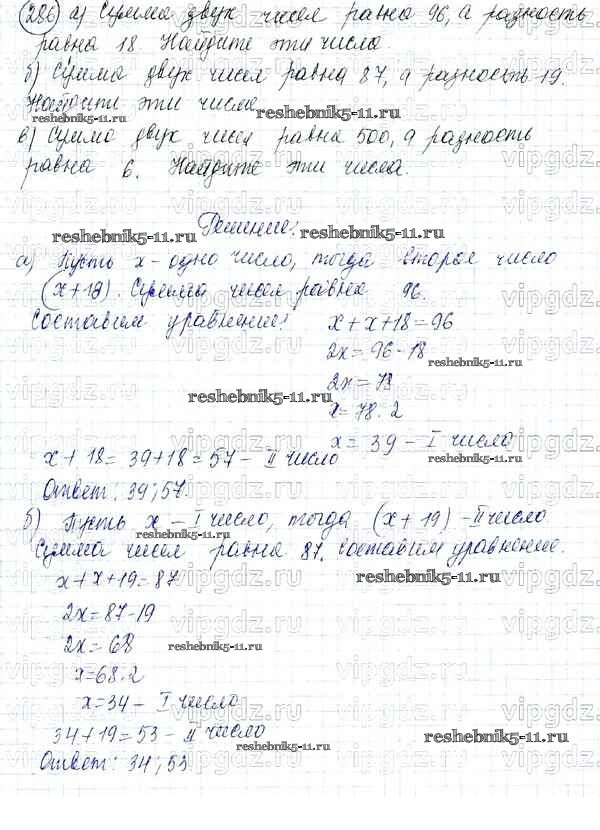 286 а) Сумма двух чисел равна 96, а разность
равна 18. Найдите эти числа.
б) Сумма двух чисел равна 87, а разность 19.
Найдите эти числа
reshebnik5-11.ru
в) Сумма двух чисел равна 500, а разность
равна 6. Найдите эти числа.
Решение:
reshebnik5-11.ru
а) Пусть x - одно число, тогда второе число
(x+18). Сумма чисел равна 96.
Составим уравнение:
x+x+18=96
2x=96-18
reshebnik5-11.ru
2x=78
reshebnik5-11.ru
x=78:2
x= 39 - I число
x+18=39+18=57- II число
reshebnik5-11.ru
Ответ: 39; 57.
б) Пусть x - I число, тогда (x+19) - II число
reshebnik5-11.ru
Сумма чисел равна 87. Составим уравнение.
x+x+19=87
reshebnik5-11.ru
2x=87-19
2x=68
reshebnik5-11.ru
x=68:2
x=34- I число
34+19=53- II число
reshebnik5-11.ru
Ответ: 34; 53
vipgdz.ru